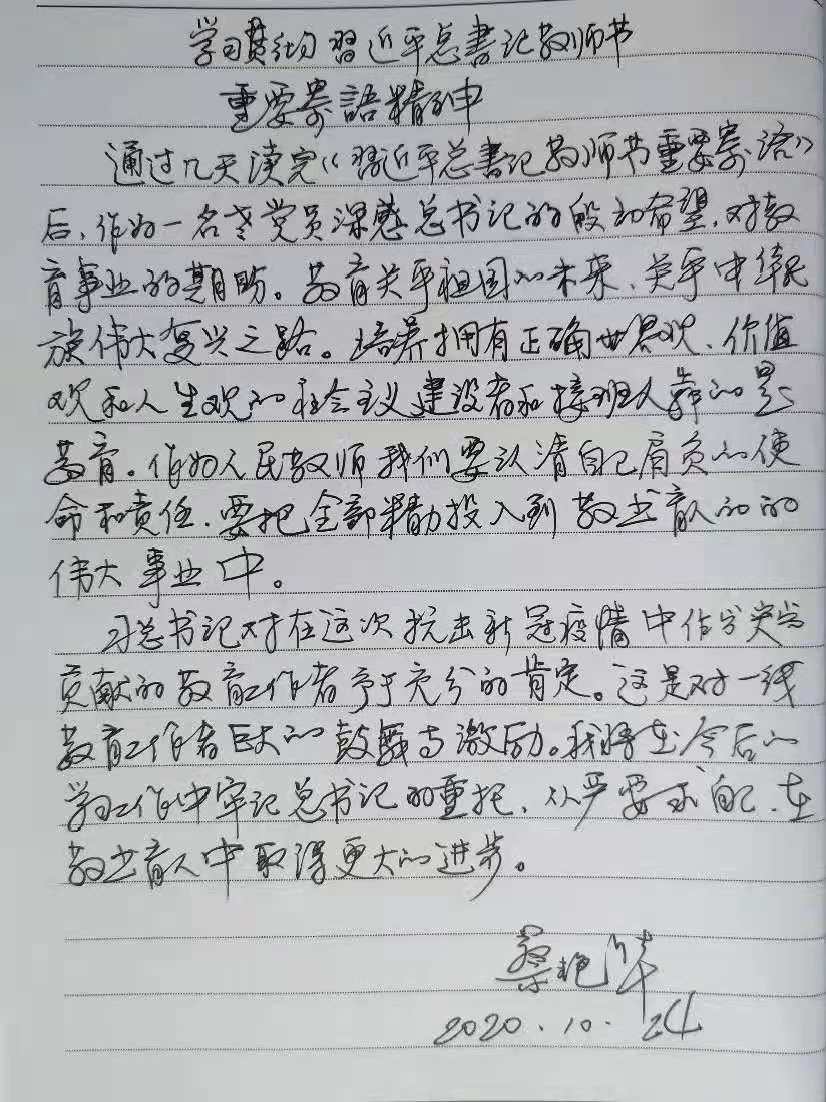 学习贯彻习近平总書记教师节
重要寄語精神
通过几天读完《习近平总書记教师节重要寄语》
后，作为一名老党员深感总书记的殷切希望，对教
育事业的期盼。教育关乎祖国的未来、关乎中华民
族伟大复兴之路。培养拥有正确世界观、价值
观和人生观的社会主义建设者和接班人靠的是
教育。作为人民教师我们要认清自己肩负的使
命和责任，要把全部精力投入到教书育人的的
伟大事业中。
习总书记对在这次抗击新冠疫情中作出突出
贡献的教育工作者予于充分的肯定。这是对一线
教育工作者巨大的鼓舞与激励。我将在今后的
学习工作中牢记总书记的重托，从严要求自己，在
教书育人中取得更大的进步。
蔡艳
2020.10.24